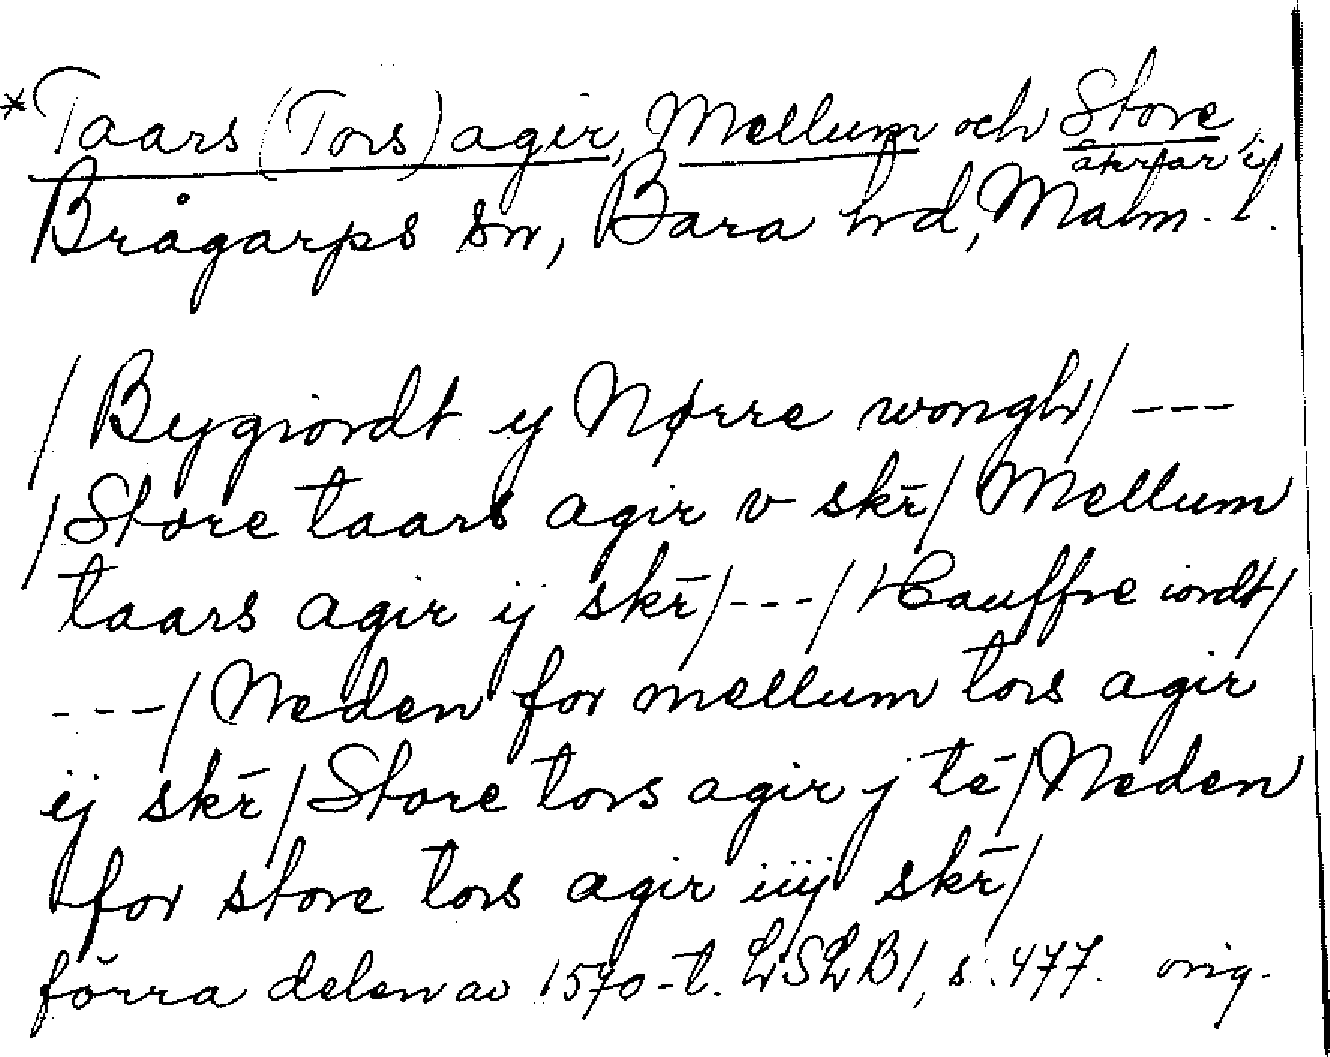 *Taars (Tors) agir, Mellum och Store
åkrar i
Brågarps sn, Bara hd, Malm. l.
/Bygiordt y Nørre wongh/ ---
/Store taars agir v skr̄/ Mellum
taars agir ij skr̄/---/Hauffre iordt/
---/Neden for mellum tors agir
ij skr̄/Store tors agir j tē/Neden
for store tors agir iiij skr̄/
förra delen av 1570-t. LSLB1, s. 477. orig.